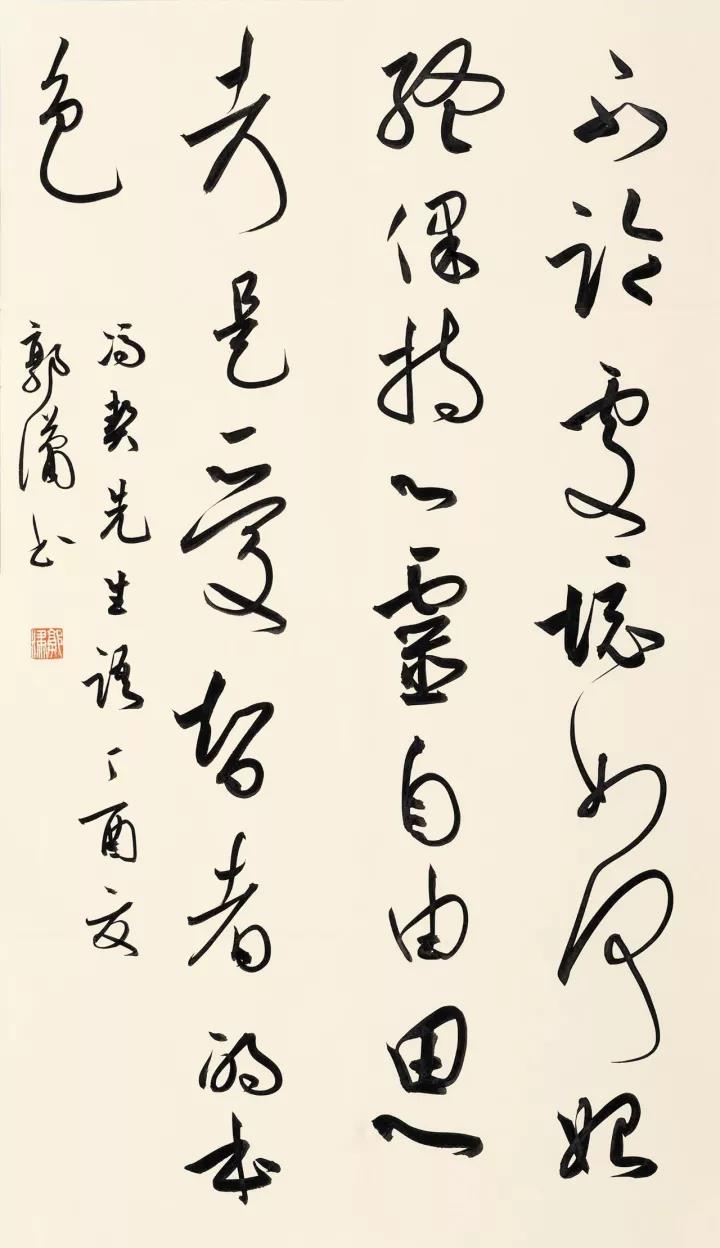 不論處境如何始
終保持心靈自由思
考是愛智者的本
色
馮契先生語丁酉夏
郭瀟書